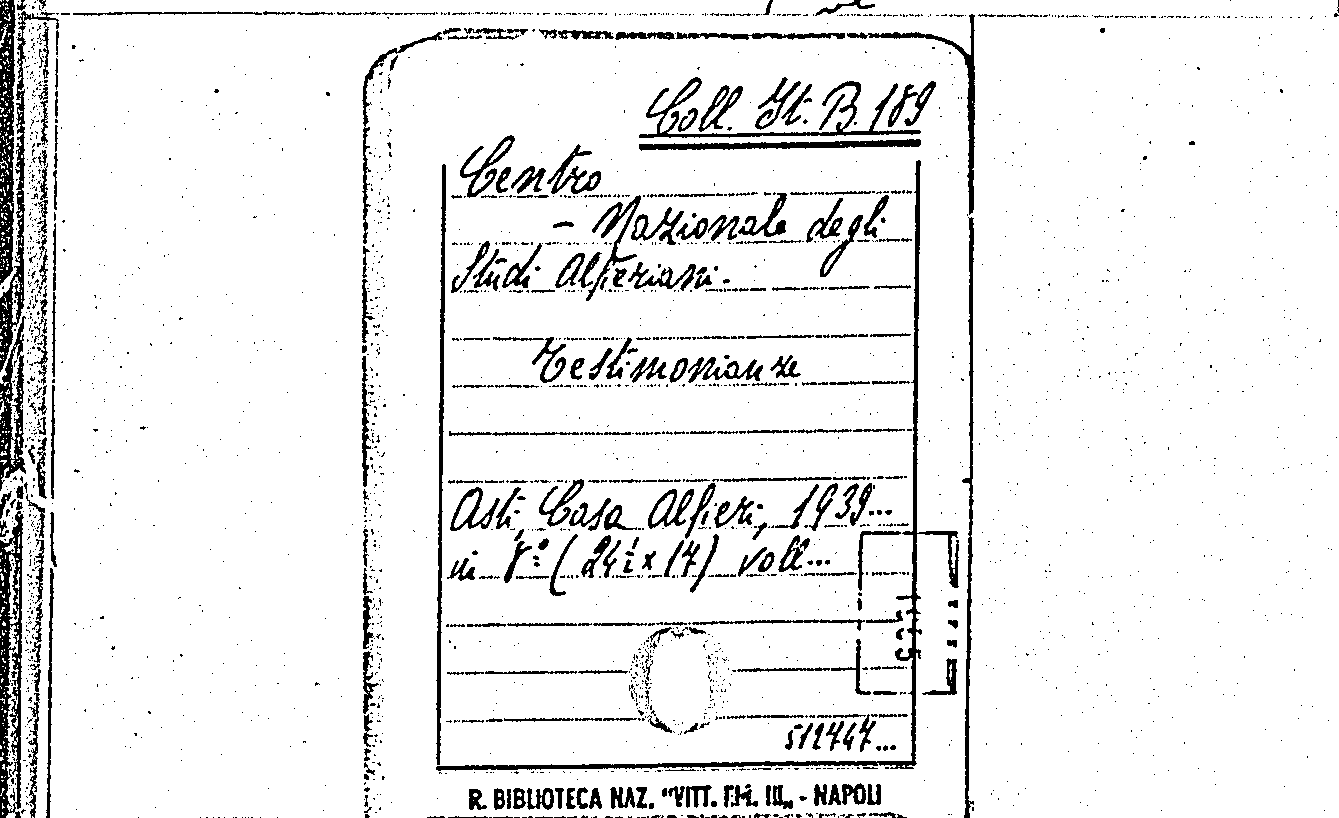 Coll. It. B. 189
Centro
- Nazionale degli
Studi Alfieriani.
Testimonianze
Asti, Casa Alfieri, 1939...
in 8º (24½ x 17) voll...
512747...
R. BIBLIOTECA NAZ. "VITT. EM. III„ - NAPOLI